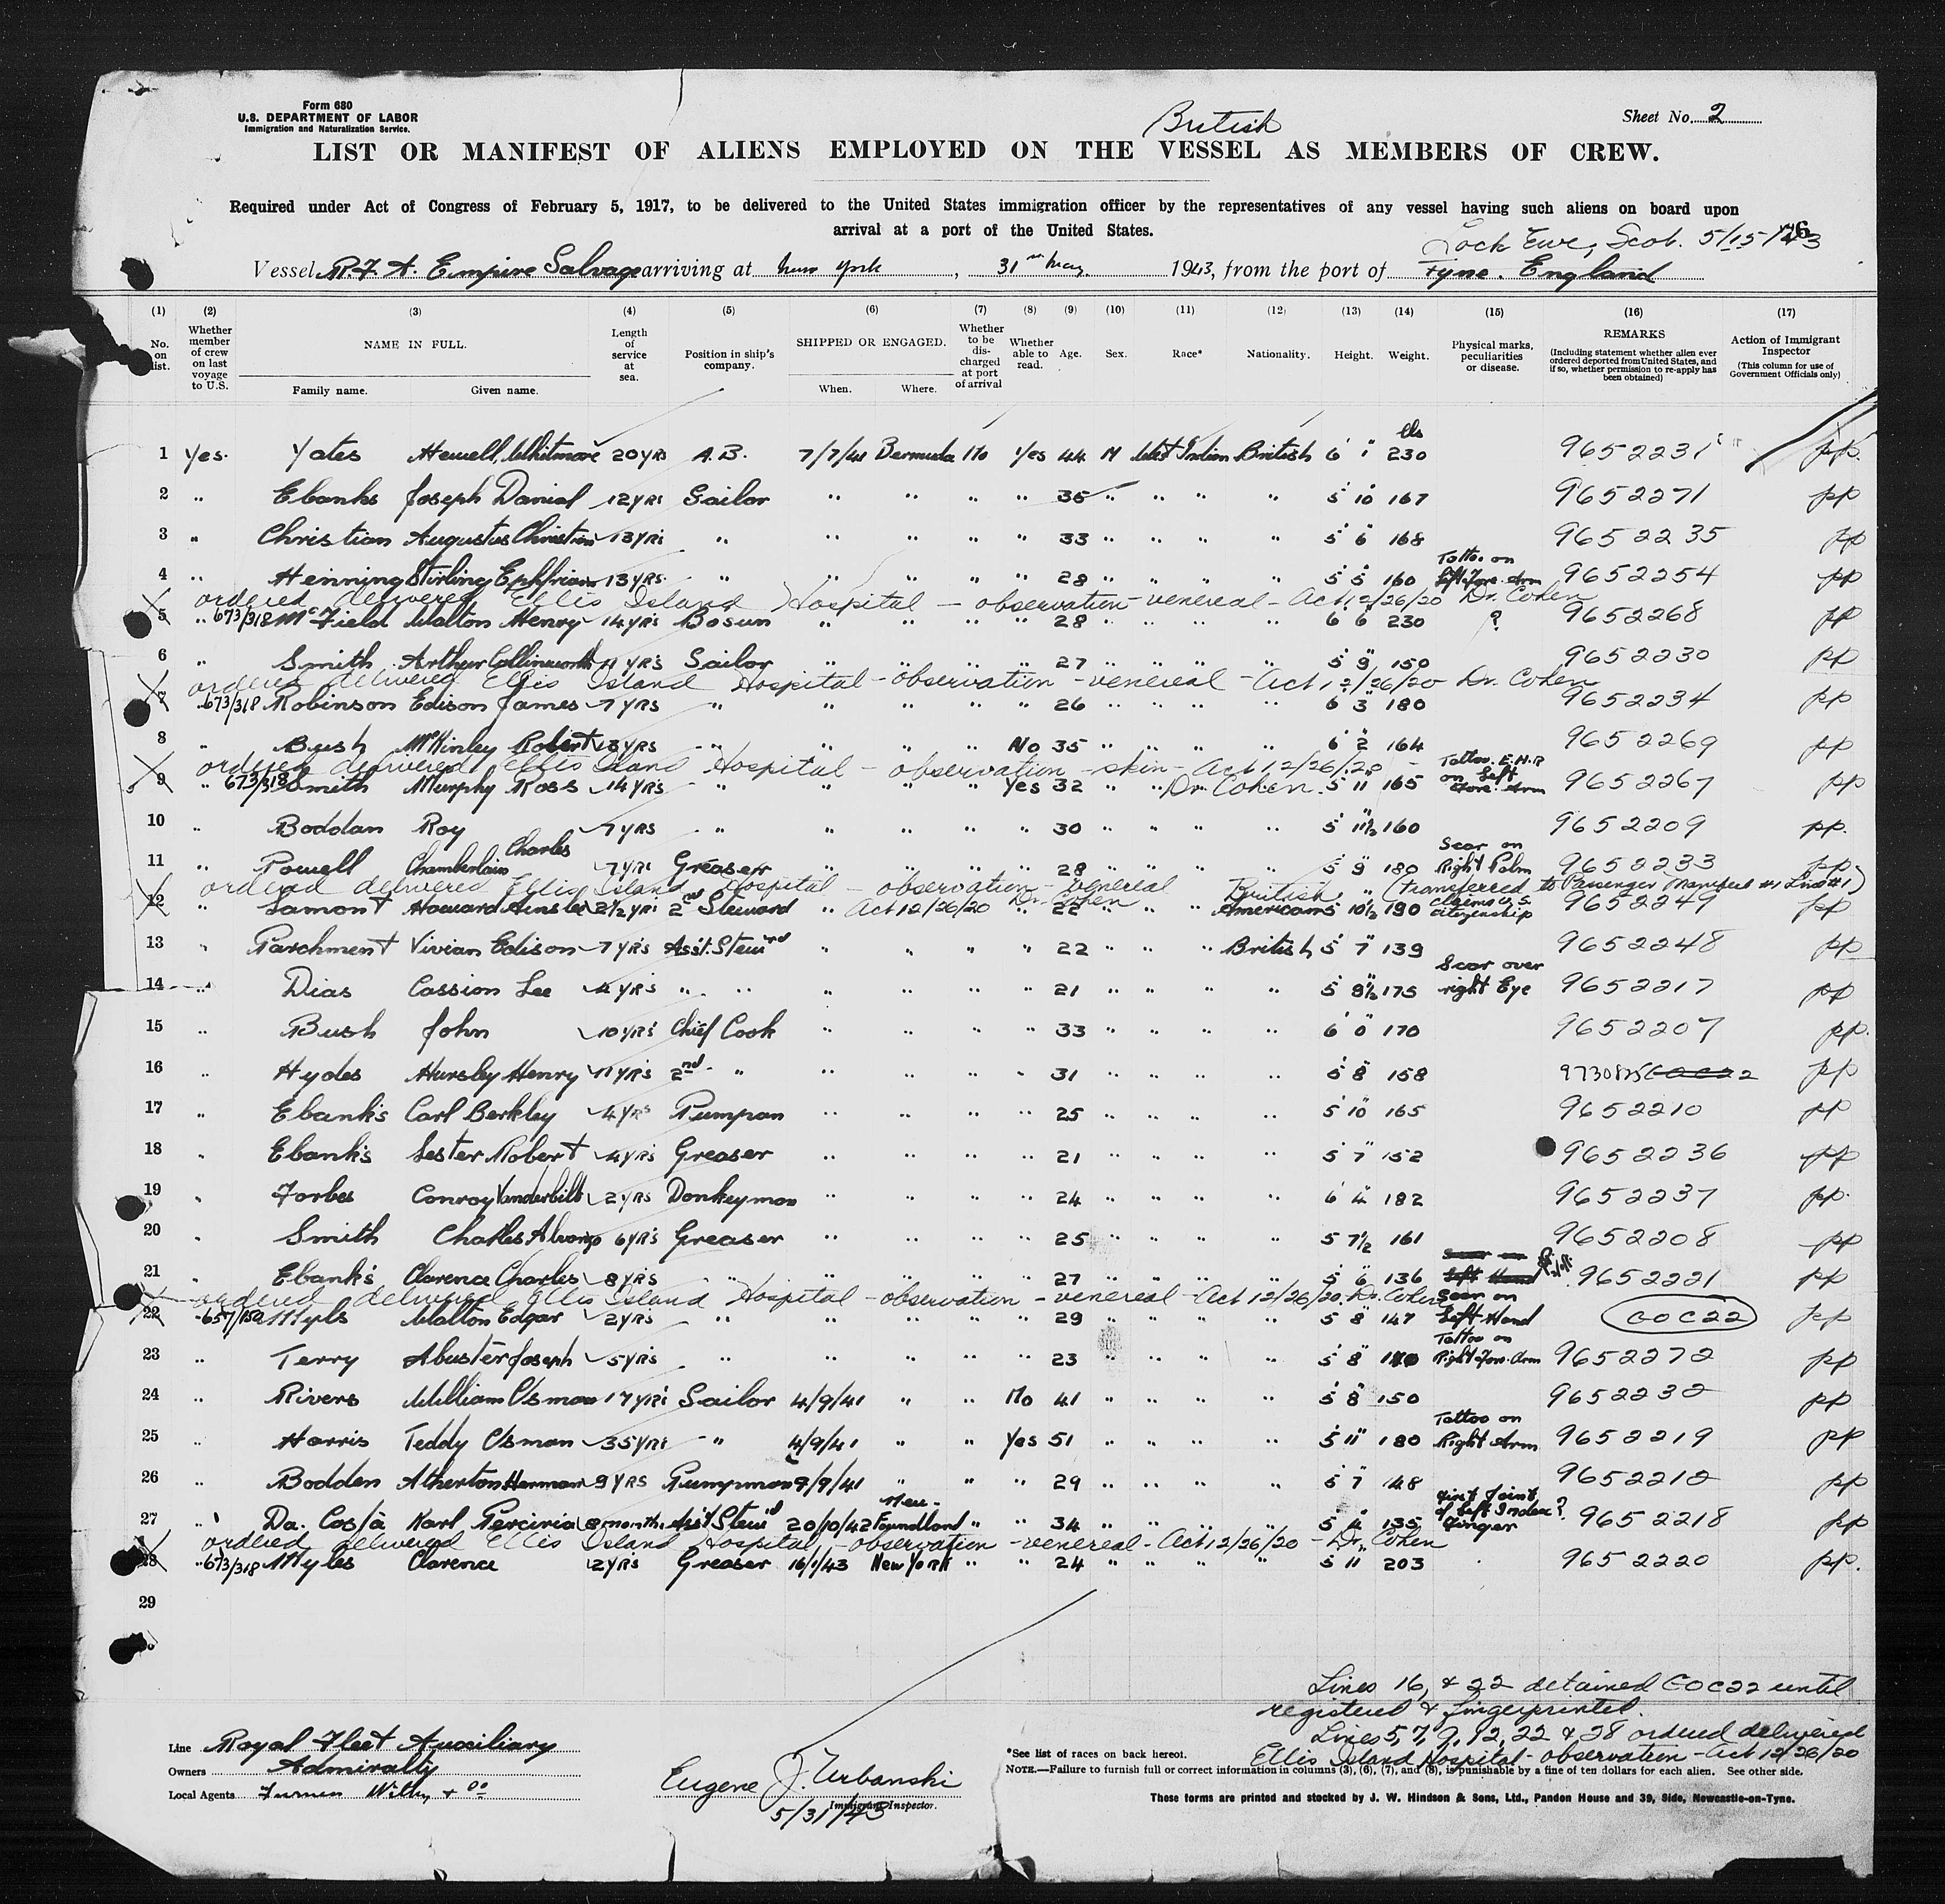 Form 680
U.S. DEPARTMENT OF LABOR
Immigration and Naturalization Service.
British
Sheet No. 2
LIST OR MANIFEST OF ALIENS EMPLOYED ON THE VESSEL AS MEMBERS OF CREW.
Required under Act of Congress of February 5, 1917, to be delivered to the United States immigration officer by the representatives of any vessel having such aliens on board upon
arrival at a port of the United States.
Lock Ewe, Scot. 5/15/43
Vessel R.F.A. Empire Salvage arriving at New York, 31st May 1943, from the port of Tyne. England
(1) (2) (3) (4) (5) (6) (7) (8) (9) (10) (11) (12) (13) (14) (15) (16) (17)
No. on list. Whether member of crew on last voyage to U.S. NAME IN FULL. Family name. Given name. Length of service at sea. Position in ship's company. SHIPPED OR ENGAGED. When. Where. Whether to be discharged at port of arrival Whether able to read. Age. Sex. Race* Nationality. Height. Weight. Physical marks, peculiarities or disease. REMARKS (Including statement whether alien ever ordered deported from United States, and if so, whether permission to re-apply has been obtained) Action of Immigrant Inspector (This column for use of Government Officials only)
1 Yes. Yates Hewell, Whitmore 20 YRS A.B. 7/7/41 Bermuda No Yes 44 M West Indian British 6 1 lbs 230 9652231 pp.
2 " Ebanks Joseph Danial 12 YRS Sailor " " " " 35 " " " " 5 10 167 9652271 pp
3 " Christian Augustus Christian 13 YRS " " " " " 33 " " " " 5 6 168 9652235 pp
4 " Henning Stirling Ephfriam 13 YRS. " " " " " 28 " " " " 5 5 160 Tattoo on left Fore-Arm 9652254 pp
ordered delivered Ellis Island Hospital - observation - venereal - Act 12/26/20 Dr. Cohen
5 " 673/318 McField Walton Henry 14 YRS Bosun " " " " 28 " " " " 6 6 230 ? 9652268 pp
6 " Smith Arthur Collinworth 11 YRS Sailor " " " " 27 " " " " 5 9 150 9652230 pp
ordered delivered Ellis Island Hospital - observation - venereal - Act 12/26/20 Dr. Cohen
7 " 673/318 Robinson Edison James 7 YRS " " " " " 26 " " " " 6 3 180 9652234 pp
8 " Bush McKinley Robert 18 YRS " " " " No 35 " " " " 6 2 164 9652269 pp
ordered delivered Ellis Island Hospital - observation - skin - Act 12/26/20 - Dr. Cohen.
9 " 673/318 Smith Murphy Ross 14 YRS " " " " Yes 32 " " 5 11 165 Tattoo. E.H.R on Left Fore-Arm 9652267 pp
10 " Boddan Roy 7 YRS " " " " " 30 " " " " 5 11½ 160 9652209 pp.
11 " Powell Chamberlain Charles 7 YRS Greaser " " " " 28 " " " " 5 9 180 Scar on Right Palm 9652233 pp.
ordered delivered Ellis Island Hospital - observation - venereal British (transferred to Passenger Manifest #1 Line #1)
12 " Lamont Howard Ainslee 2½ YRS 2nd Steward " Act 12/26/20 Dr. Cohen 22 " " " American 5 10½ 190 claims U.S. citizenship 9652249 pp
13 " Parchment Vivian Edison 7 YRS Asst. Stew'rd " " " " 22 " " " British 5 7 139 9652248 pp
14 " Dias Cassion Lee 4 YRS " " " " " " 21 " " " " 5 8½ 175 Scar over right Eye 9652217 pp
15 " Bush John 10 YRS Chief Cook " " " " 33 " " " " 6 0 170 9652207 pp.
16 " Hydes Hursley Henry 11 YRS 2nd " " " " " 31 " " " " 5 8 158 9730825 pp
17 " Ebank's Carl Berkley 4 YRS Pumpan " " " " 25 " " " " 5 10 165 9652210 pp
18 " Ebank's Lester Robert 4 YRS Greaser " " " " 21 " " " " 5 7 152 9652236 pp
19 " Forbes Conroy Vanderbilt 2 YRS Donkeyman " " " " 24 " " " " 6 4 182 9652237 pp.
20 " Smith Charles Alvonzo 6 YRS Greaser " " " " 25 " " " " 5 7½ 161 9652208 pp
21 " Ebank's Clarence Charles 8 YRS " " " " " 27 " " " " 5 6 136 Scar on Left Hand 9652221 pp
ordered delivered Ellis Island Hospital - observation - venereal - Act 12/26/20. Dr. Cohen
22 Myls Walton Edgar 2 YRS " " " " " 29 " " " " 5 8 147 Scar on Left Hand GOC22 pp
23 " Terry Abuster Joseph 5 YRS " " " " " 23 " " " " 5 8 Tattoo on Right Fore-Arm 9652272 pp
24 " Rivers William Osmon 17 YRS Sailor 4/9/41 " " No 41 " " " " 5 8 150 9652232 pp
25 " Harris Teddy Osman 35 YRS " 4/9/41 " " Yes 51 " " " " 5 11 180 Tattoo on Right Arm 9652219 pp
26 " Bodden Atherton Herman 9 YRS Pumpman 9/9/41 " " " 29 " " " " 5 7 148 9652212 pp
27 " Da. Costa Karl Perciria 8 months Asst Stew'd 20/10/42 New-Foundland " " 34 " " " " 5 4 135 First Joint of Left Index Finger ? 9652218 pp
ordered delivered Ellis Island Hospital, - observation - venereal - Act 12/26/20 - Dr. Cohen
28 " 673/318 Myles Clarence 2 YRS Greaser 16/1/43 New York " " 24 " " " " 5 11 203 9652220 pp.
29
Lines 16, & 22 detained GOC22 until
registered & fingerprinted.
Lines 5, 7, 9, 12, 22 & 28 ordered delivered
Ellis Island Hospital - observation - Act 12/26/20
Line Royal Fleet Auxiliary
Owners Admiralty
Local Agents Furness Withy & Co
Eugene J. Urbanski
Immigrant Inspector.
5/31/43
*See list of races on back hereof.
NOTE.—Failure to furnish full or correct information in columns (3), (6), (7), and (8), is punishable by a fine of ten dollars for each alien. See other side.
These forms are printed and stocked by J. W. Hindson & Sons, Ltd., Pandon House and 39, Side, Newcastle-on-Tyne.